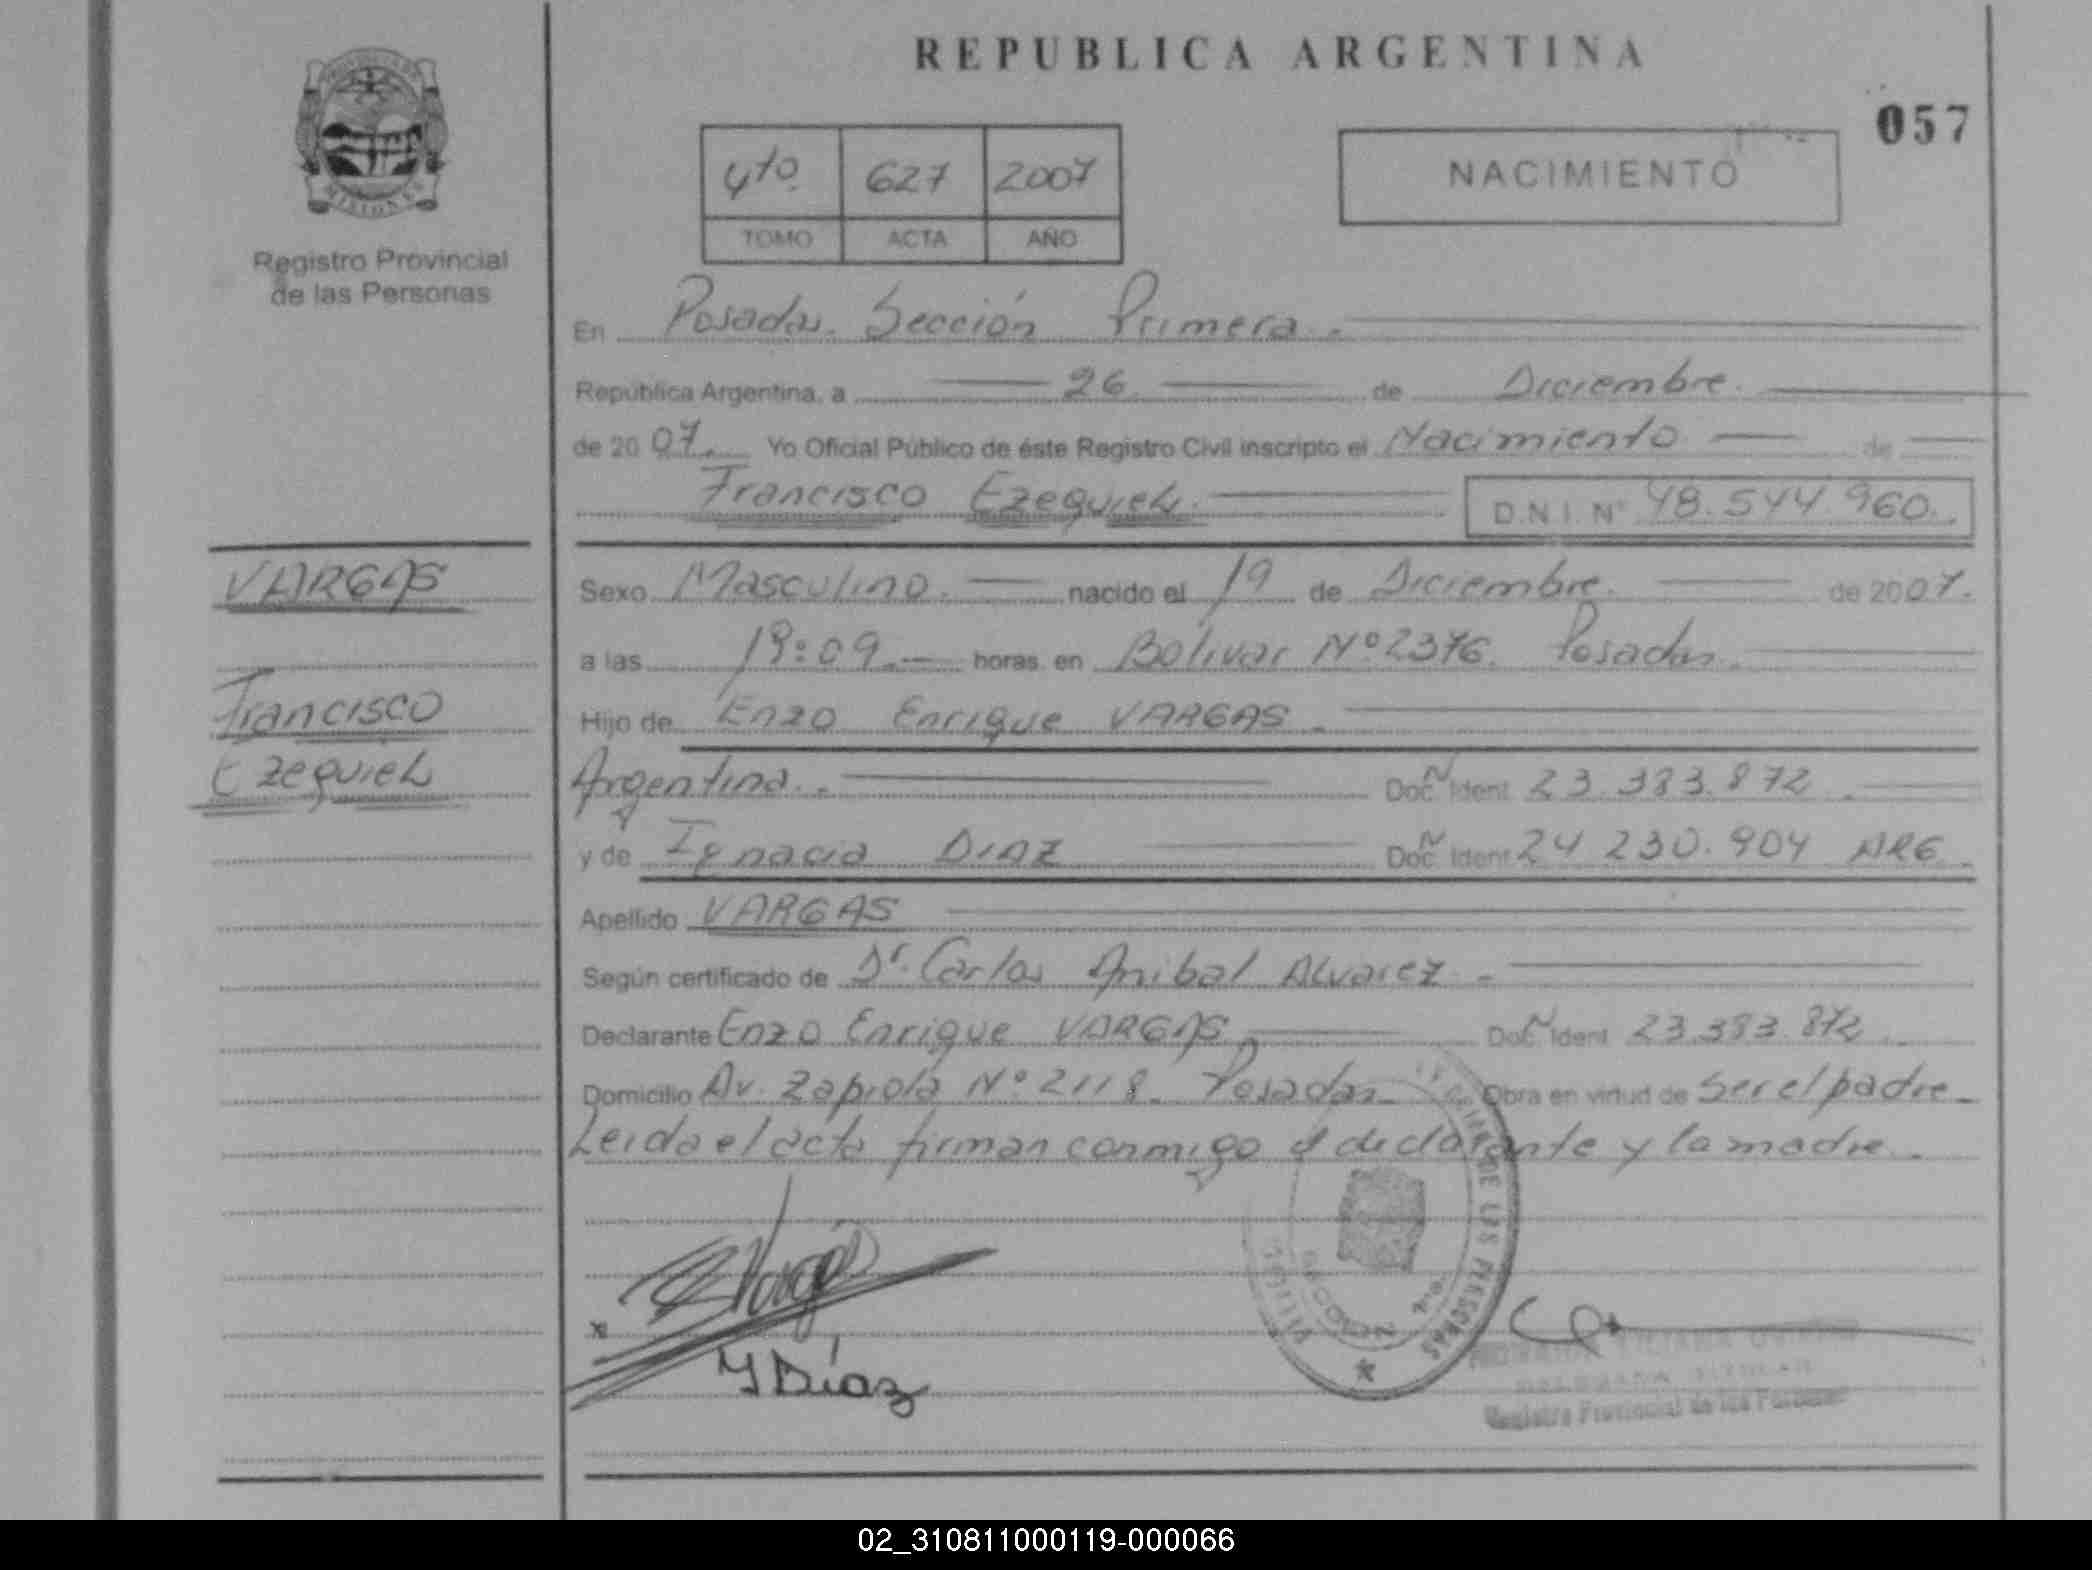 REPUBLICA ARGENTINA
057
PROVINCIA DE
MISIONES
Registro Provincial
de las Personas
4to. 627 2007
TOMO ACTA AÑO
NACIMIENTO
En Posadas. Sección Primera.
República Argentina, a 26. de Diciembre.
de 2007. Yo Oficial Público de éste Registro Civil inscripto el Nacimiento de
Francisco Ezequiel. D.N.I. Nº 48.544.960.
VARGAS
Francisco
Ezequiel
Sexo Masculino. nacido el 19 de Diciembre. de 2007.
a las 19:09. horas. en Bolivar Nº 2376. Posadas.
Hijo de Enzo Enrique VARGAS.
Argentina. Doc. Ident. 23.383.872.
y de Ignacia DIAZ Doc. Ident. 24.230.904 ARG.
Apellido VARGAS
Según certificado de Dr. Carlos Anibal Alvarez.
Declarante Enzo Enrique VARGAS. Doc. Ident. 23.383.872.
Domicilio Av. Zapiola Nº 2118. Posadas. Obra en virtud de Ser el padre.
Leida el acta firman conmigo el declarante y la madre.
DE LAS PERSONAS
Vargas
I Díaz
Registro Provincial de las Personas
02_310811000119-000066